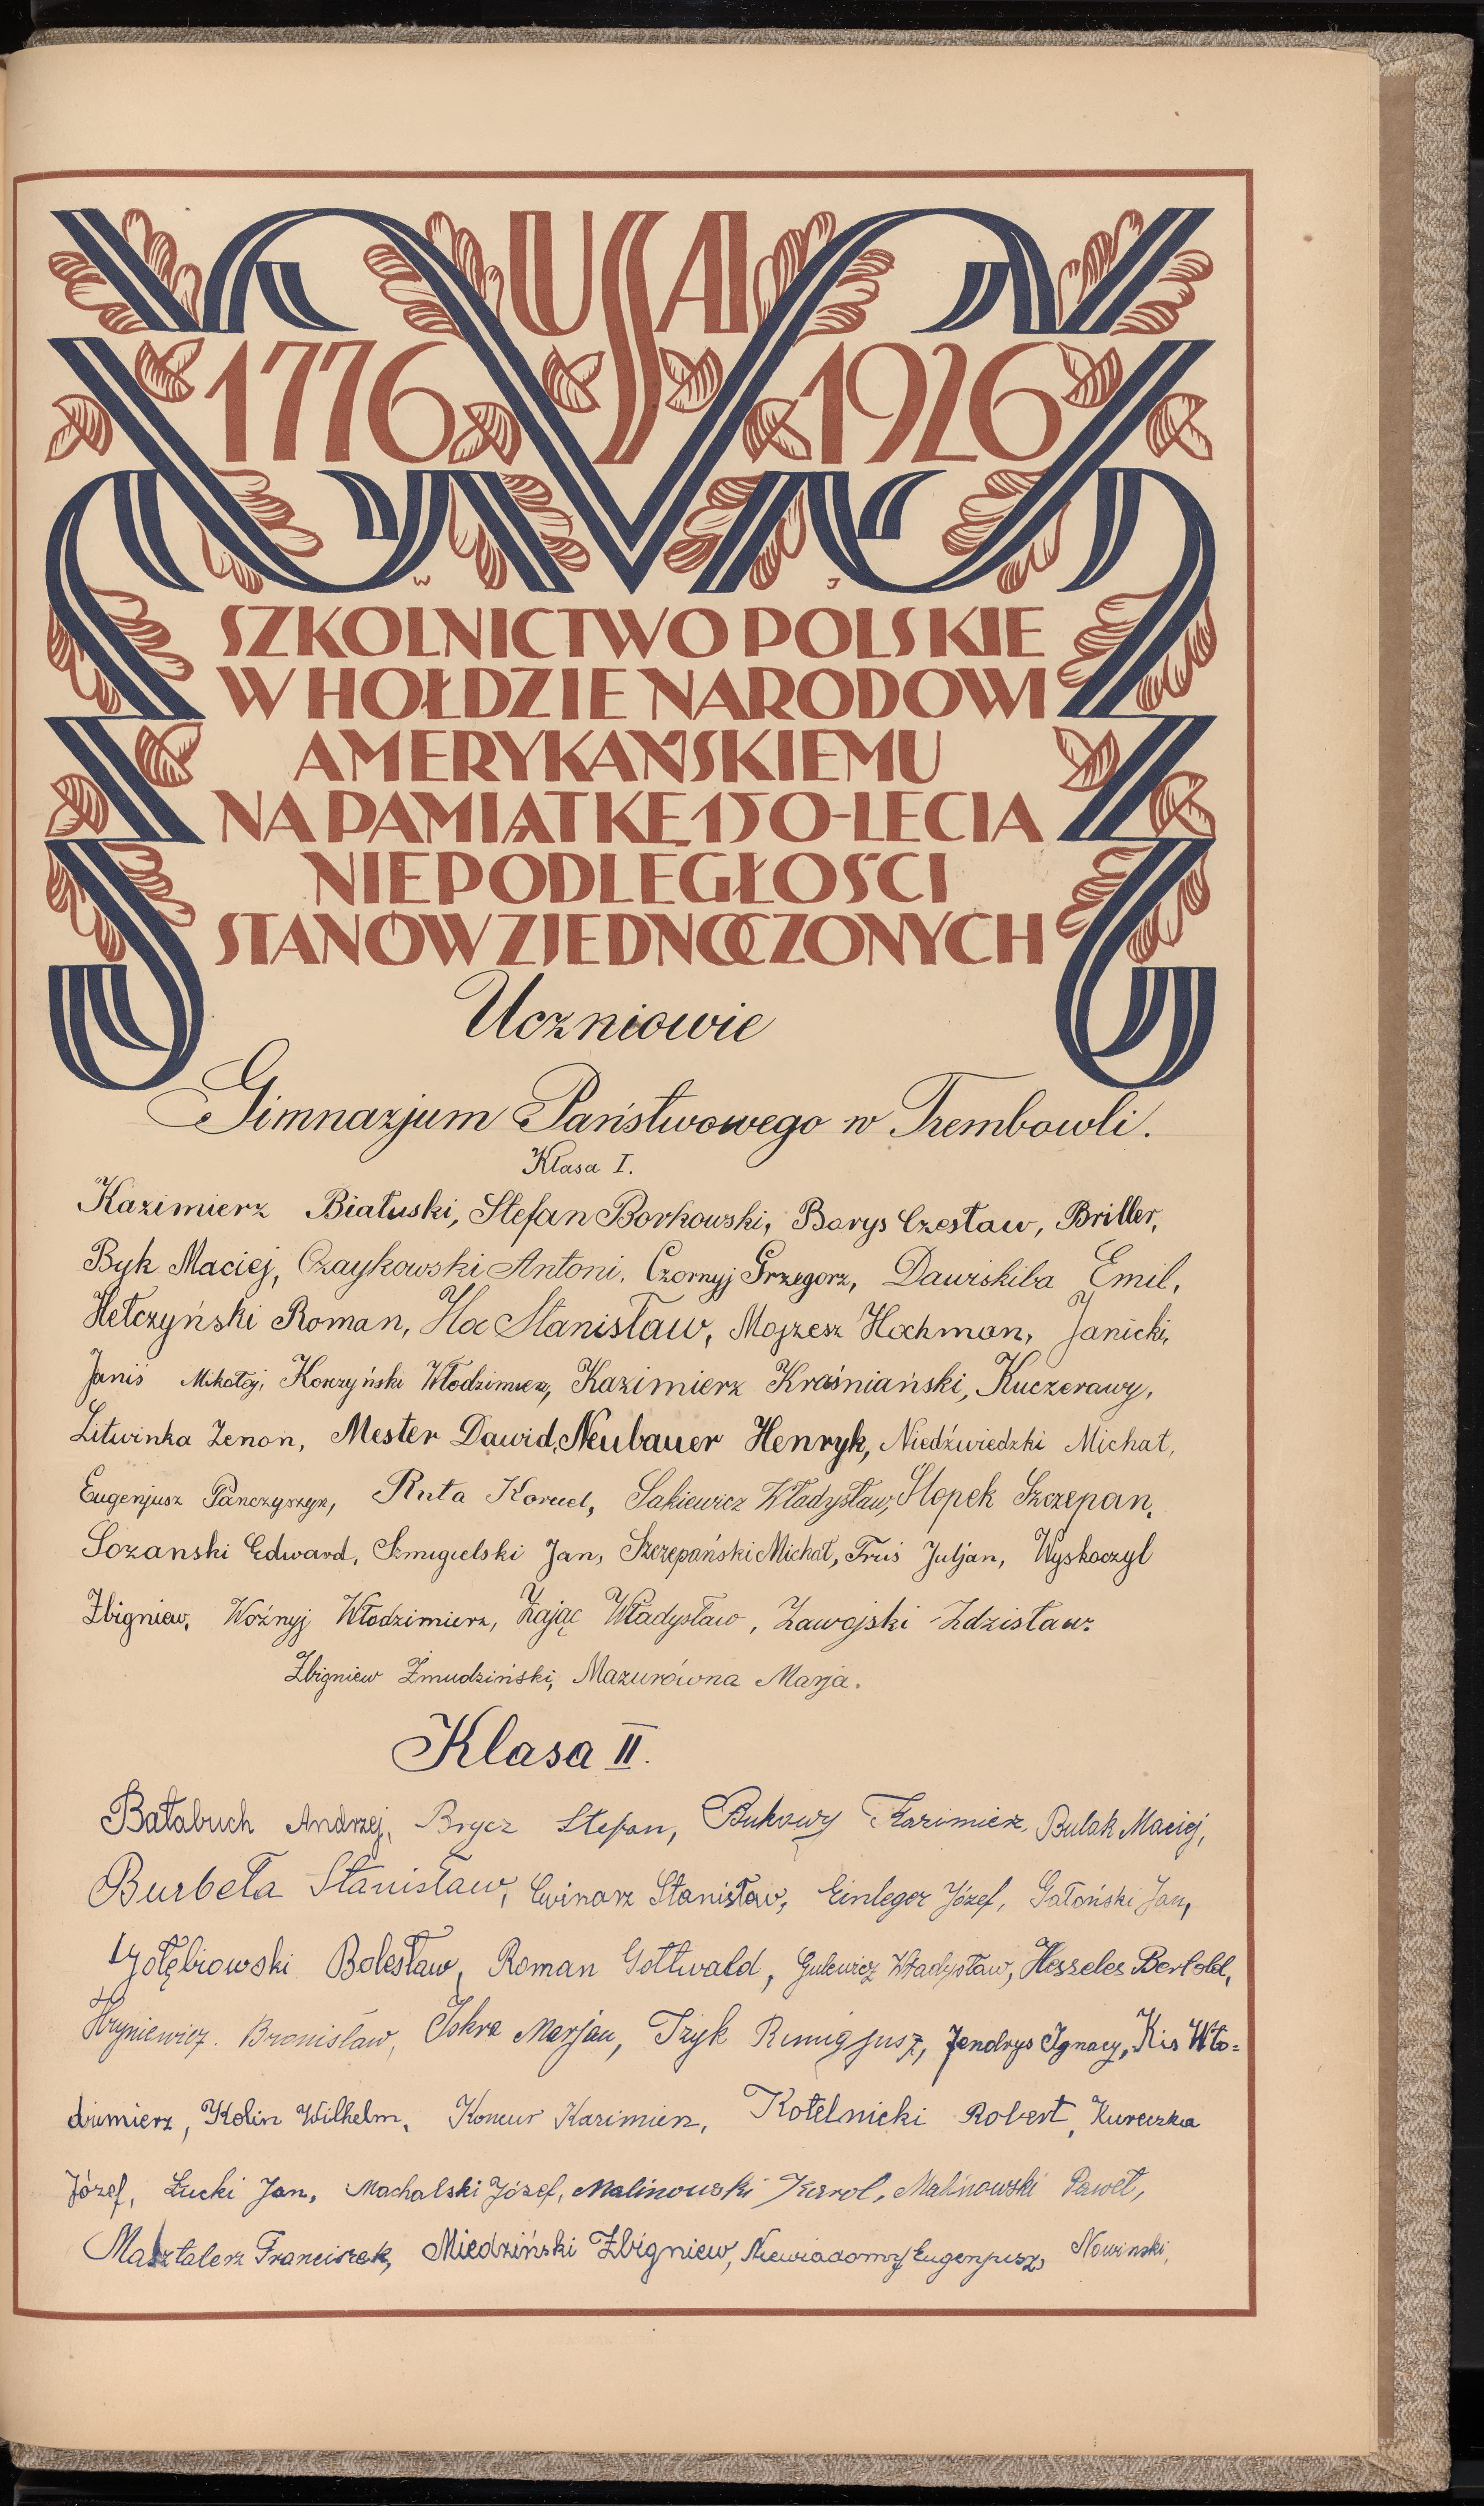 USA
1776 1926
W J
SZKOLNICTWO POLSKIE
W HOŁDZIE NARODOWI
AMERYKAŃSKIEMU
NA PAMIĄTKĘ 150-LECIA
NIEPODLEGŁOŚCI
STANÓW ZJEDNOCZONYCH
Uczniowie
Gimnazjum Państwowego w Trembowli.
Klasa I.
Kazimierz Białuski, Stefan Borkowski, Borys Czesław, Briller,
Byk Maciej, Czaykowski Antoni, Czornyj Grzegorz, Dawiskiba Emil,
Hełczyński Roman, Hoc Stanisław, Mojżesz Hochman, Janicki,
Janiś Mikołaj, Korczyński Włodzimierz, Kazimierz Kraśniański, Kuczerawy,
Litwinka Zenon, Mester Dawid, Neubauer Henryk, Niedźwiedzki Michał,
Eugenjusz Panczyszyn, Ruta Kornel, Sakiewicz Władysław, Słopek Szczepan,
Sozanski Edward, Szmigielski Jan, Szczepański Michał, Truś Juljan, Wyskoczyl
Zbigniew, Woźnyj Włodzimierz, Zając Władysław, Zawojski Zdzisław.
Zbigniew Żmudziński, Mazurówna Marja.
Klasa II.
Bałabuch Andrzej, Brycz Stefan, Bukowy Kazimierz, Bulak Maciej,
Burbeła Stanisław, Cwinarz Stanisław, Einleger Józef, Gałoński Jan,
Gołębiowski Bolesław, Roman Gottwald, Gulewicz Władysław, Heszeles Bertold,
Hryniewicz. Bronisław, Iskra Marjan, Izyk Remigjusz, Jendrys Ignacy, Kis Wło=
dzimierz, Kolin Wilhelm, Koncur Kazimierz, Kotelnicki Robert, Kureczka
Józef, Łucki Jan, Machalski Józef, Malinowski Karol, Malinowski Paweł,
Masztalerz Franciszek, Miedziński Zbigniew, Niewiadomy Eugenjusz, Nowinski,